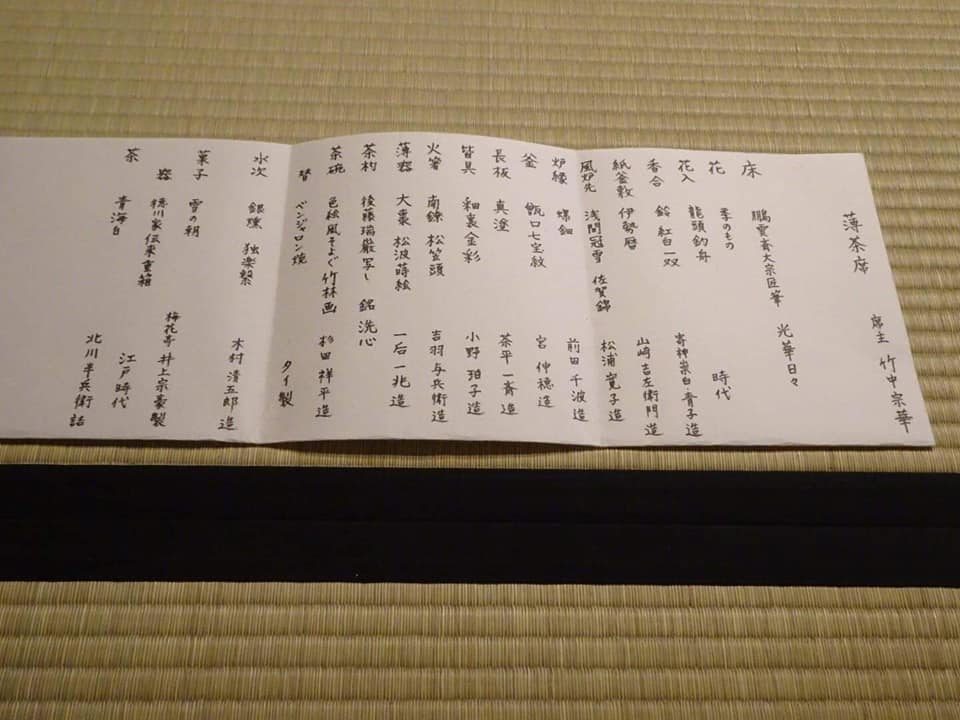 薄茶席
席主 竹中宗華
床 鵬雲斎大宗匠筆 光華日々
花 季のもの
花入 龍頭釣舟 時代
香合 鈴 紅白一双 寄神崇白・青子造
紙釜敷 伊勢暦 山崎吉左衛門造
風炉先 浅間冠雪 佐賀錦 松浦寛子造
炉縁 螺鈿 前田千波造
釜 甑口七宝紋 宮伸穂造
長板 真塗 茶平一斎造
皆具 和蘭金彩 小野珀子造
火箸 南鐐 松笠頭 吉羽与兵衛造
薄器 大棗 松波蒔絵 一后一兆造
茶杓 後藤瑞巌写し 銘 洗心
茶碗 色絵風そよぐ竹林画 杉田祥平造
替 ベンジャロン焼 タイ製
水次 銀燻 独楽繋 木村清五郎造
菓子 雪の朝 梅花亭 井上宗豪製
器 徳川家伝来重箱 江戸時代
茶 青海白 北川半兵衛詰